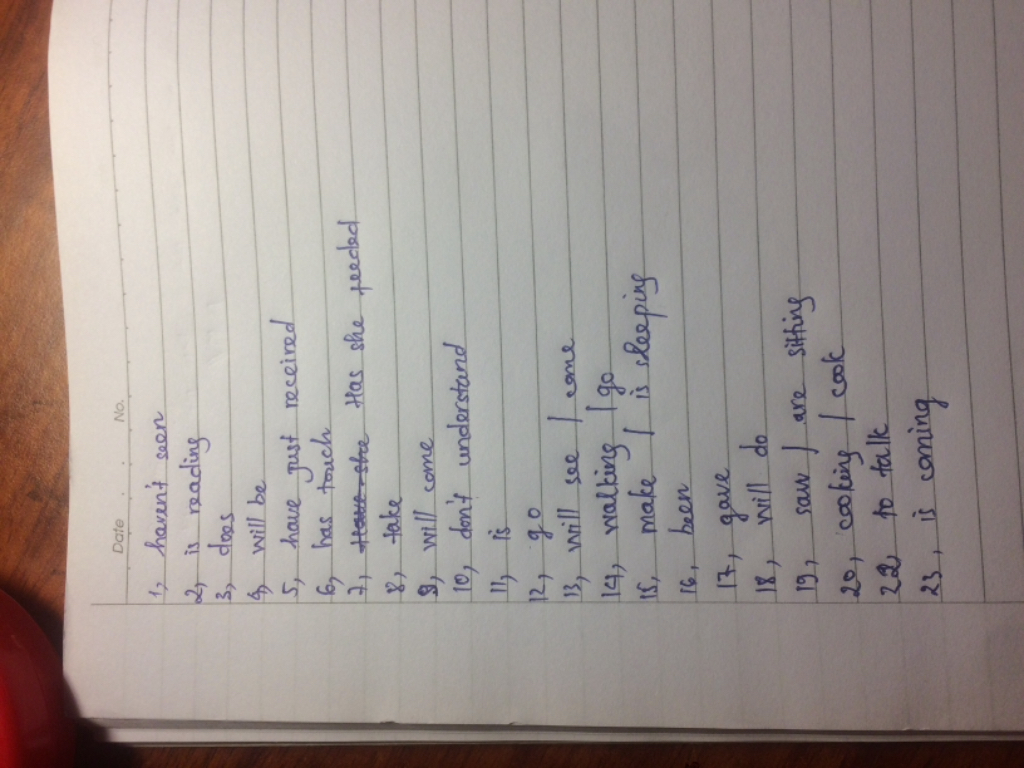 Date No.
1, haven't seen
2, is reading
3, does
4, will be
5, have just received
6, has touch
7, Has she feeded
8, take
9, will come
10, don't understand
11, is
12, go
13, will see / come
14, walking / go
15, make / is sleeping
16, been
17, gave
18, will do
19, saw / are sitting
20, cooking / cook
22, to talk
23, is coming